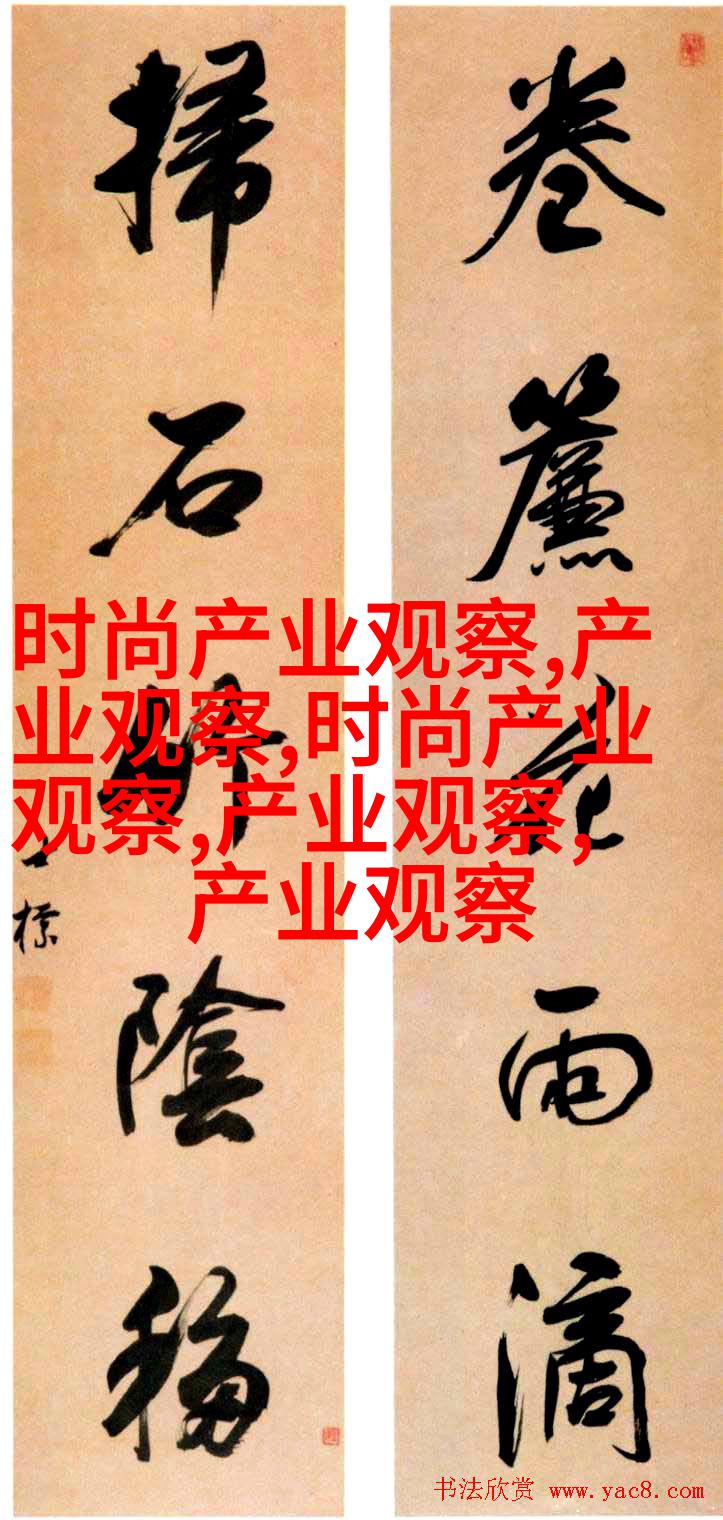 卷簾花雨滴
掃石竹陰移
標
时尚产业观察,产
业观察,时尚产业
观察,产业观察,
产业观察
书法欣赏 www.yac8.com